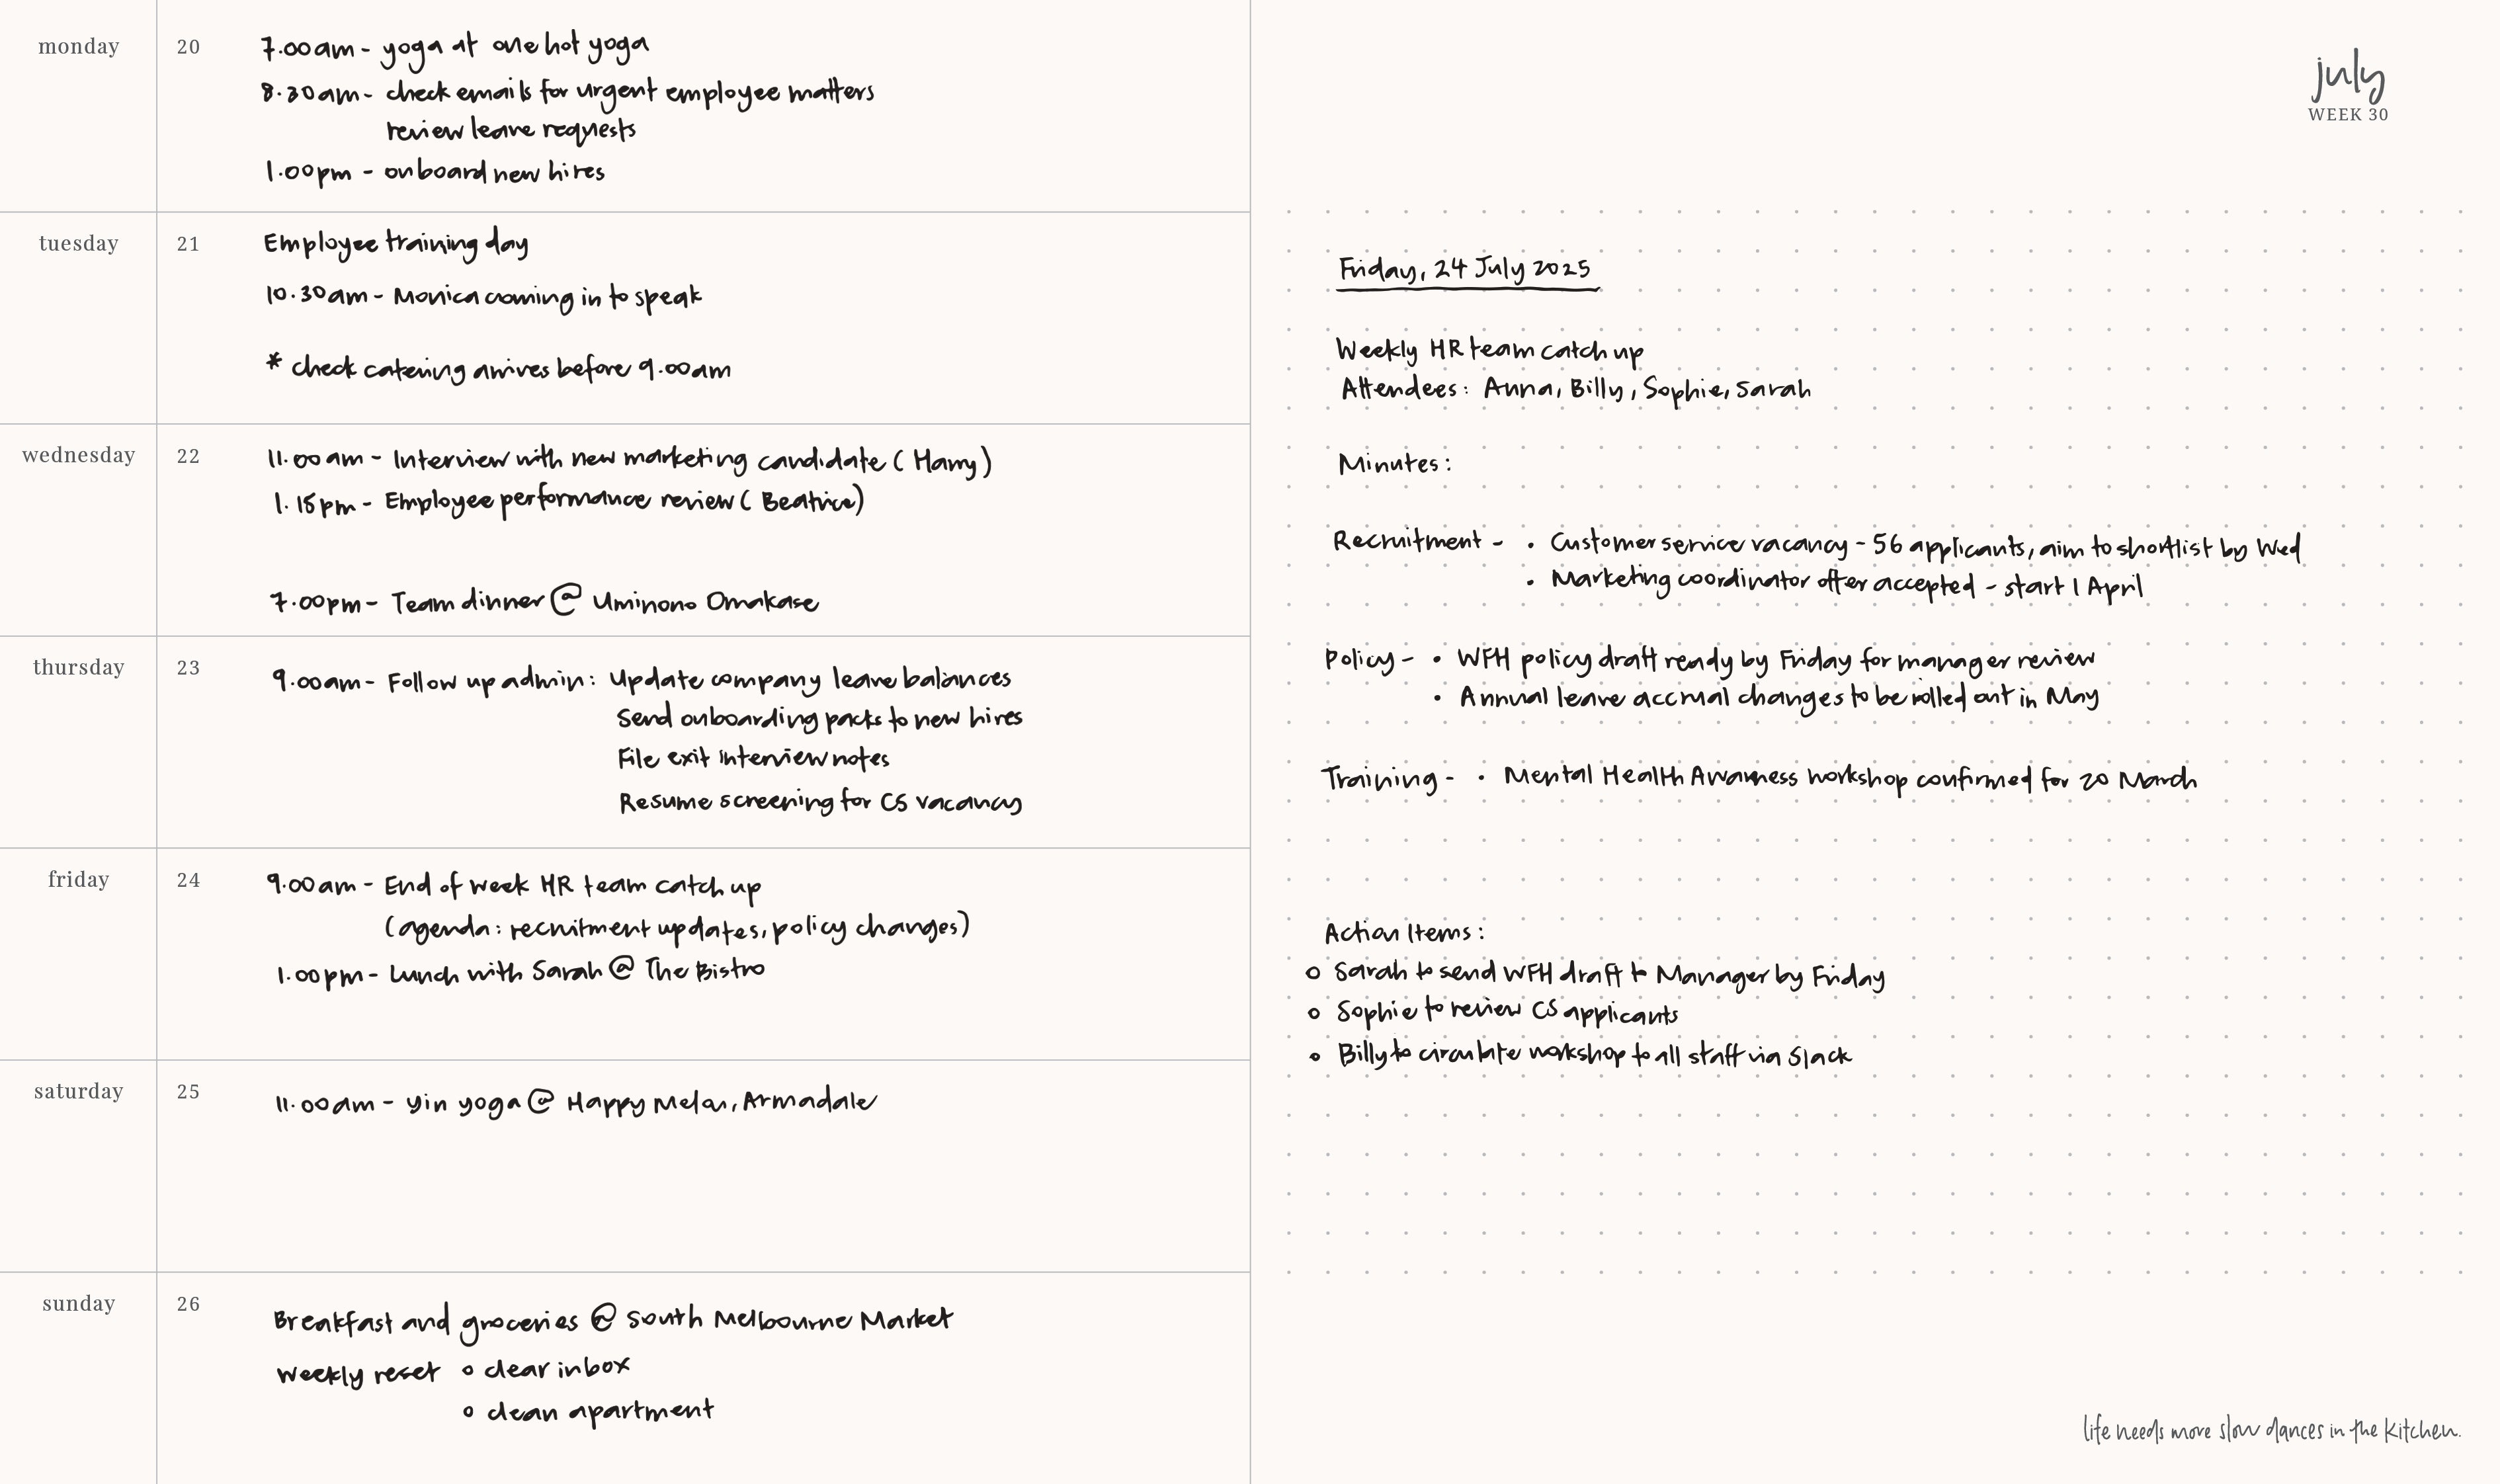 monday 20
7.00am - yoga at one hot yoga
8.30am - check emails for urgent employee matters
review leave requests
1.00pm - onboard new hires
tuesday 21
Employee training day
10.30am - Monica coming in to speak
* check catering arrives before 9.00am
wednesday 22
11.00am - Interview with new marketing candidate (Harry)
1.15pm - Employee performance review (Beatrice)
7.00pm - Team dinner @ Uminono Omakase
thursday 23
9.00am - Follow up admin: Update company leave balances
Send onboarding packs to new hires
File exit interview notes
Resume screening for CS vacancy
friday 24
9.00am - End of week HR team catch up
(agenda: recruitment updates, policy changes)
1.00pm - Lunch with Sarah @ The Bistro
saturday 25
11.00am - yin yoga @ Happy Melon, Armadale
sunday 26
Breakfast and groceries @ South Melbourne Market
weekly reset o clear inbox
o clean apartment
july
WEEK 30
Friday, 24 July 2025
Weekly HR team catch up
Attendees: Anna, Billy, Sophie, Sarah
Minutes:
Recruitment - • Customer service vacancy - 56 applicants, aim to shortlist by Wed
• Marketing coordinator offer accepted - start 1 April
Policy - • WFH policy draft ready by Friday for manager review
• Annual leave accrual changes to be rolled out in May
Training - • Mental Health Awareness workshop confirmed for 20 March
Action Items:
o Sarah to send WFH draft to Manager by Friday
o Sophie to review CS applicants
o Billy to circulate workshop to all staff via Slack
life needs more slow dances in the kitchen.